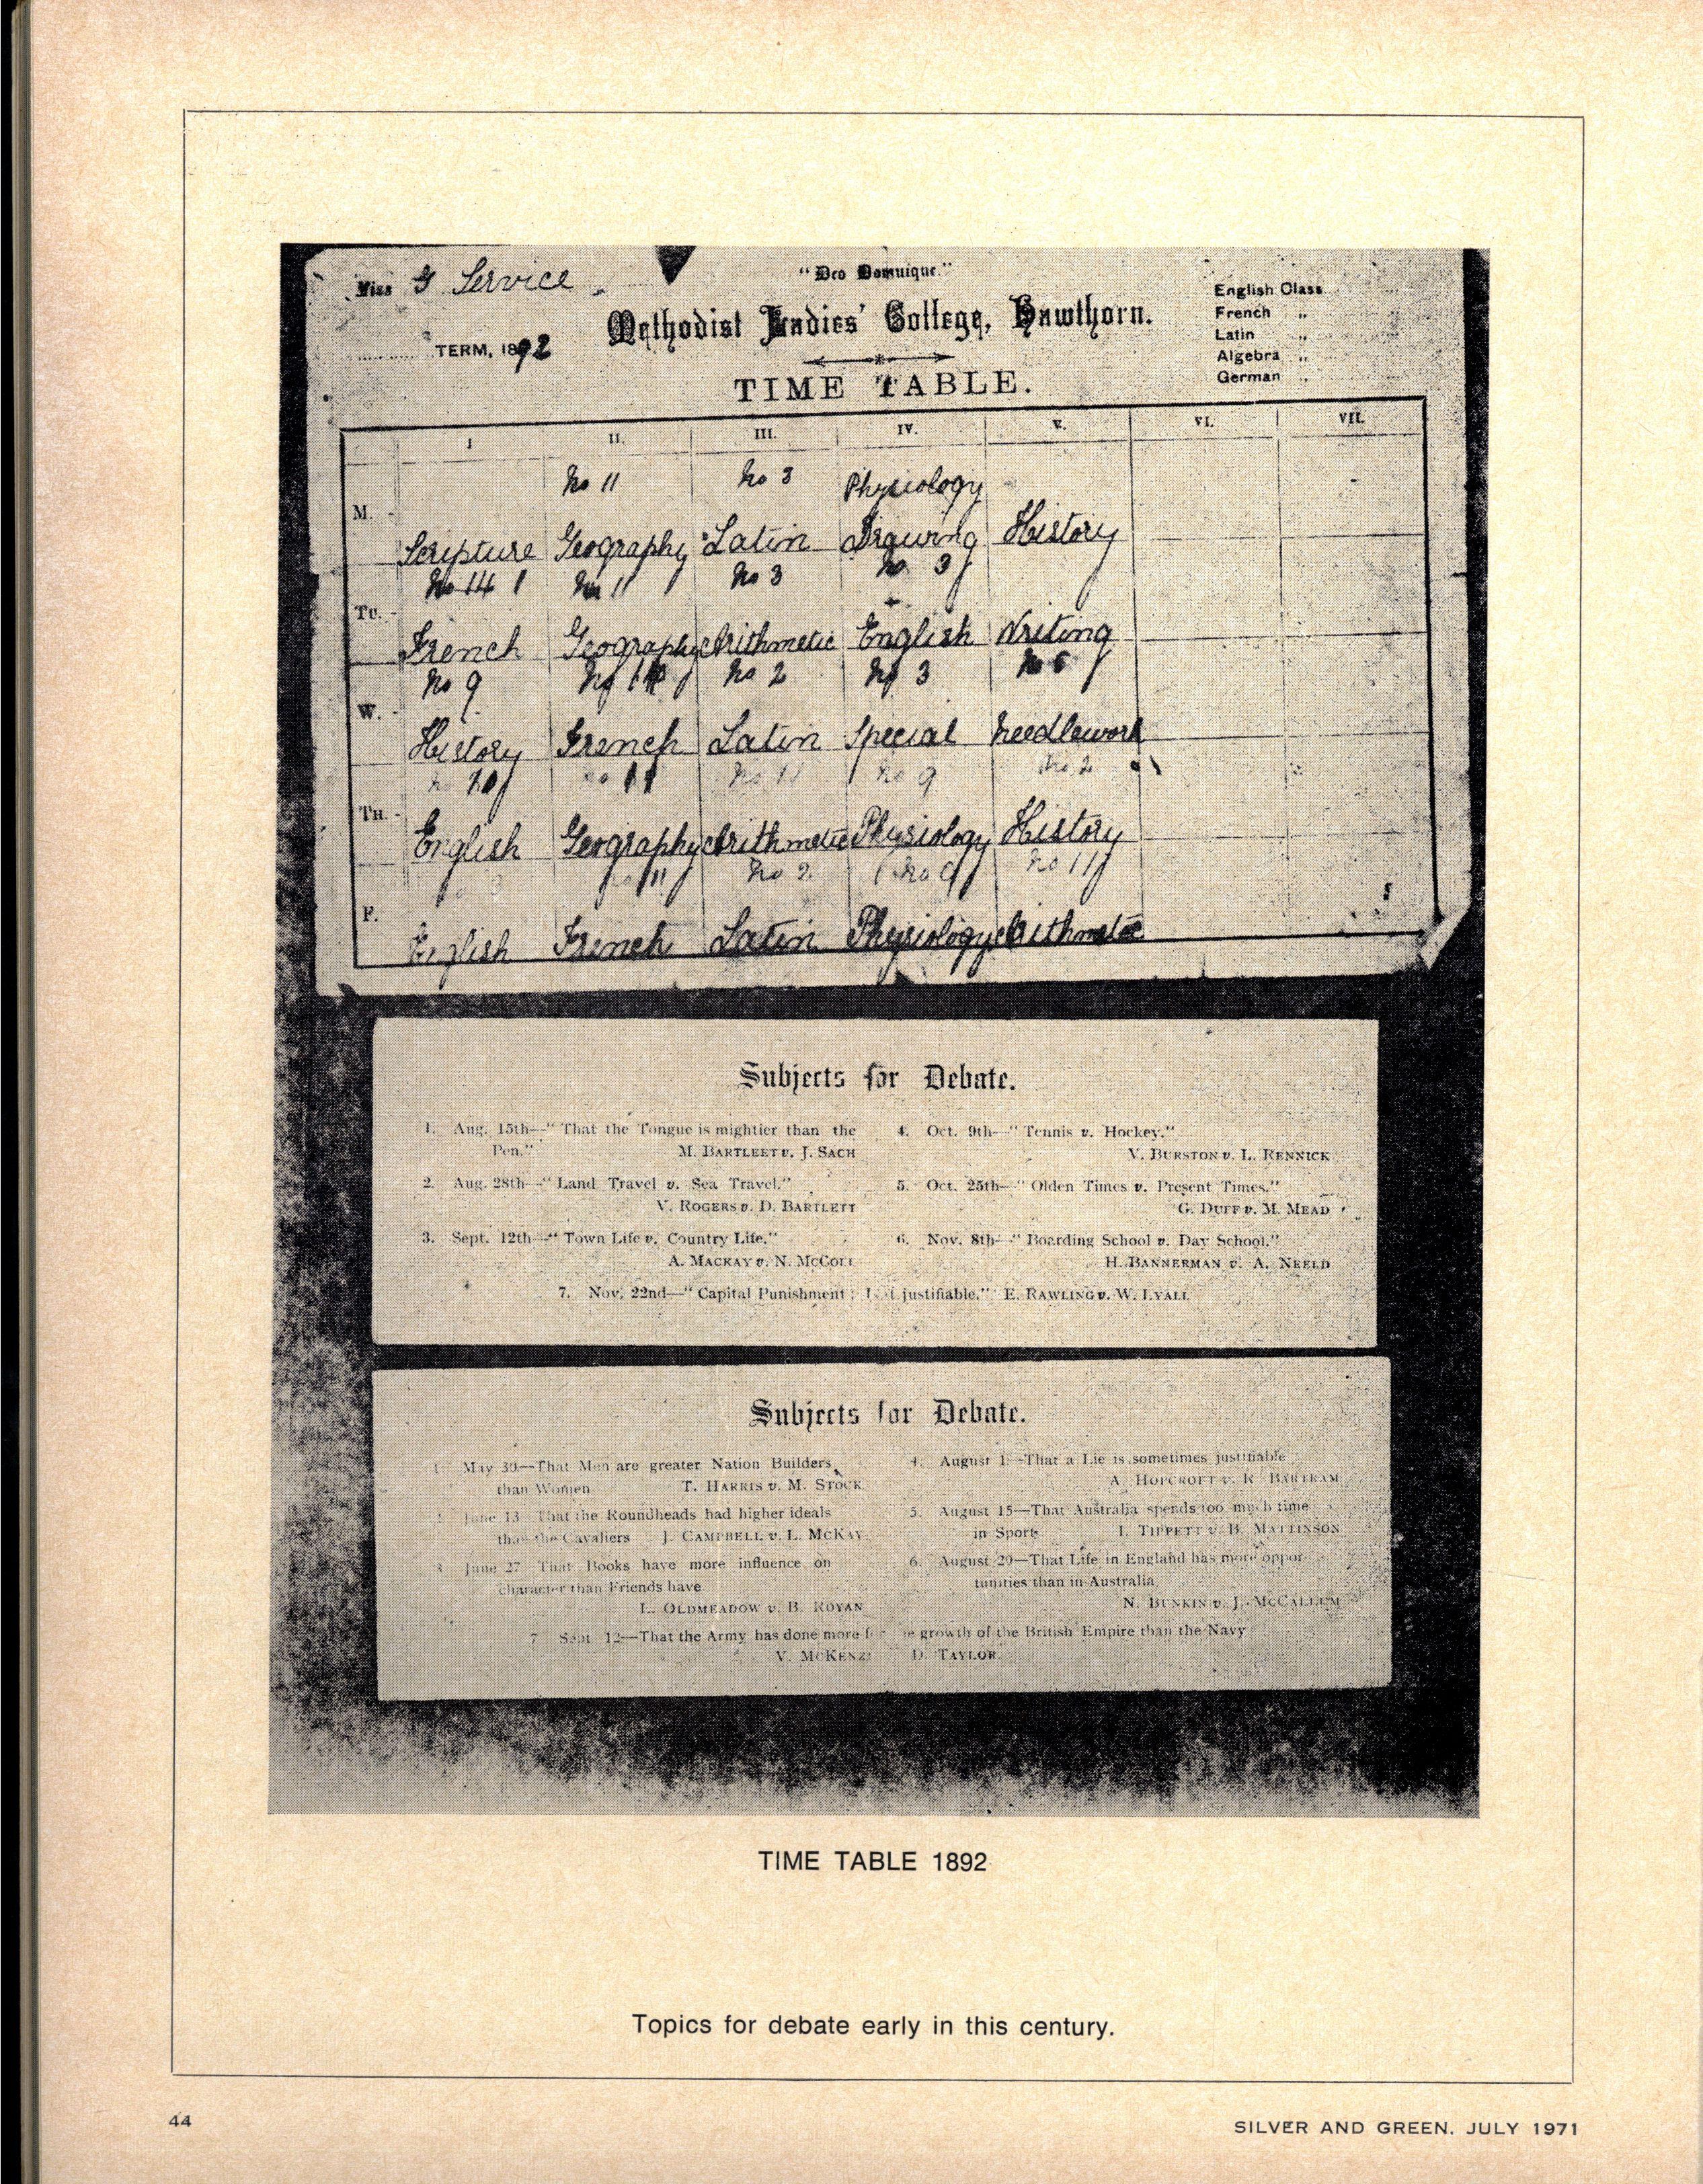 Miss G Service
"Deo Domuique."
Methodist Ladies' College, Hawthorn.
TERM, 1892
TIME TABLE.
English Class
French „
Latin „
Algebra „
German „
I II. III. IV. V. VI. VII.
No 11 No 3 Physiology
M. -
Scripture Geography Latin Drawing History
No 14 1 No 11 No 3 No 3
Tu. -
French Geography Arithmetic English Writing
No 9 No 2 No 3
W. -
History French Latin Special Needlework
No 11 No 9 No 2
Th. -
English Geography Arithmetic Physiology History
11 No 2 No 9 No 11
F.
English French Latin Physiology Arithmetic
Subjects for Debate.
1. Aug. 15th—"That the Tongue is mightier than the
Pen." M. Bartleet v. J. Sach
2. Aug. 28th—"Land Travel v. Sea Travel."
V. Rogers v. D. Bartlett
3. Sept. 12th—"Town Life v. Country Life."
A. Mackay v. N. McColl
4. Oct. 9th—"Tennis v. Hockey."
V. Burston v. L. Rennick
5. Oct. 25th—"Olden Times v. Present Times."
G. Duff v. M. Mead
6. Nov. 8th—"Boarding School v. Day School."
H. Bannerman v. A. Neeld
7. Nov. 22nd—"Capital Punishment justifiable." E. Rawling v. W. Lyall
Subjects for Debate.
1 May 30—That Men are greater Nation Builders
than Women T. Harris v. M. Stock
2 June 13 That the Roundheads had higher ideals
than the Cavaliers J. Campbell v. L. McKay
3 June 27 That Books have more influence on
character than Friends have
L. Oldmeadow v. B. Royan
4. August 1—That a Lie is sometimes justifiable
A. Hopcroft v. R. Bartram
5. August 15—That Australia spends too much time
in Sports I. Tippett v. B. Mattinson
6. August 29—That Life in England has more oppor-
tunities than in Australia
N. Bunkin v. J. McCallum
7 Sept 12—That the Army has done more growth of the British Empire than the Navy
V. McKenzi D. Taylor
TIME TABLE 1892
Topics for debate early in this century.
44
SILVER AND GREEN. JULY 1971